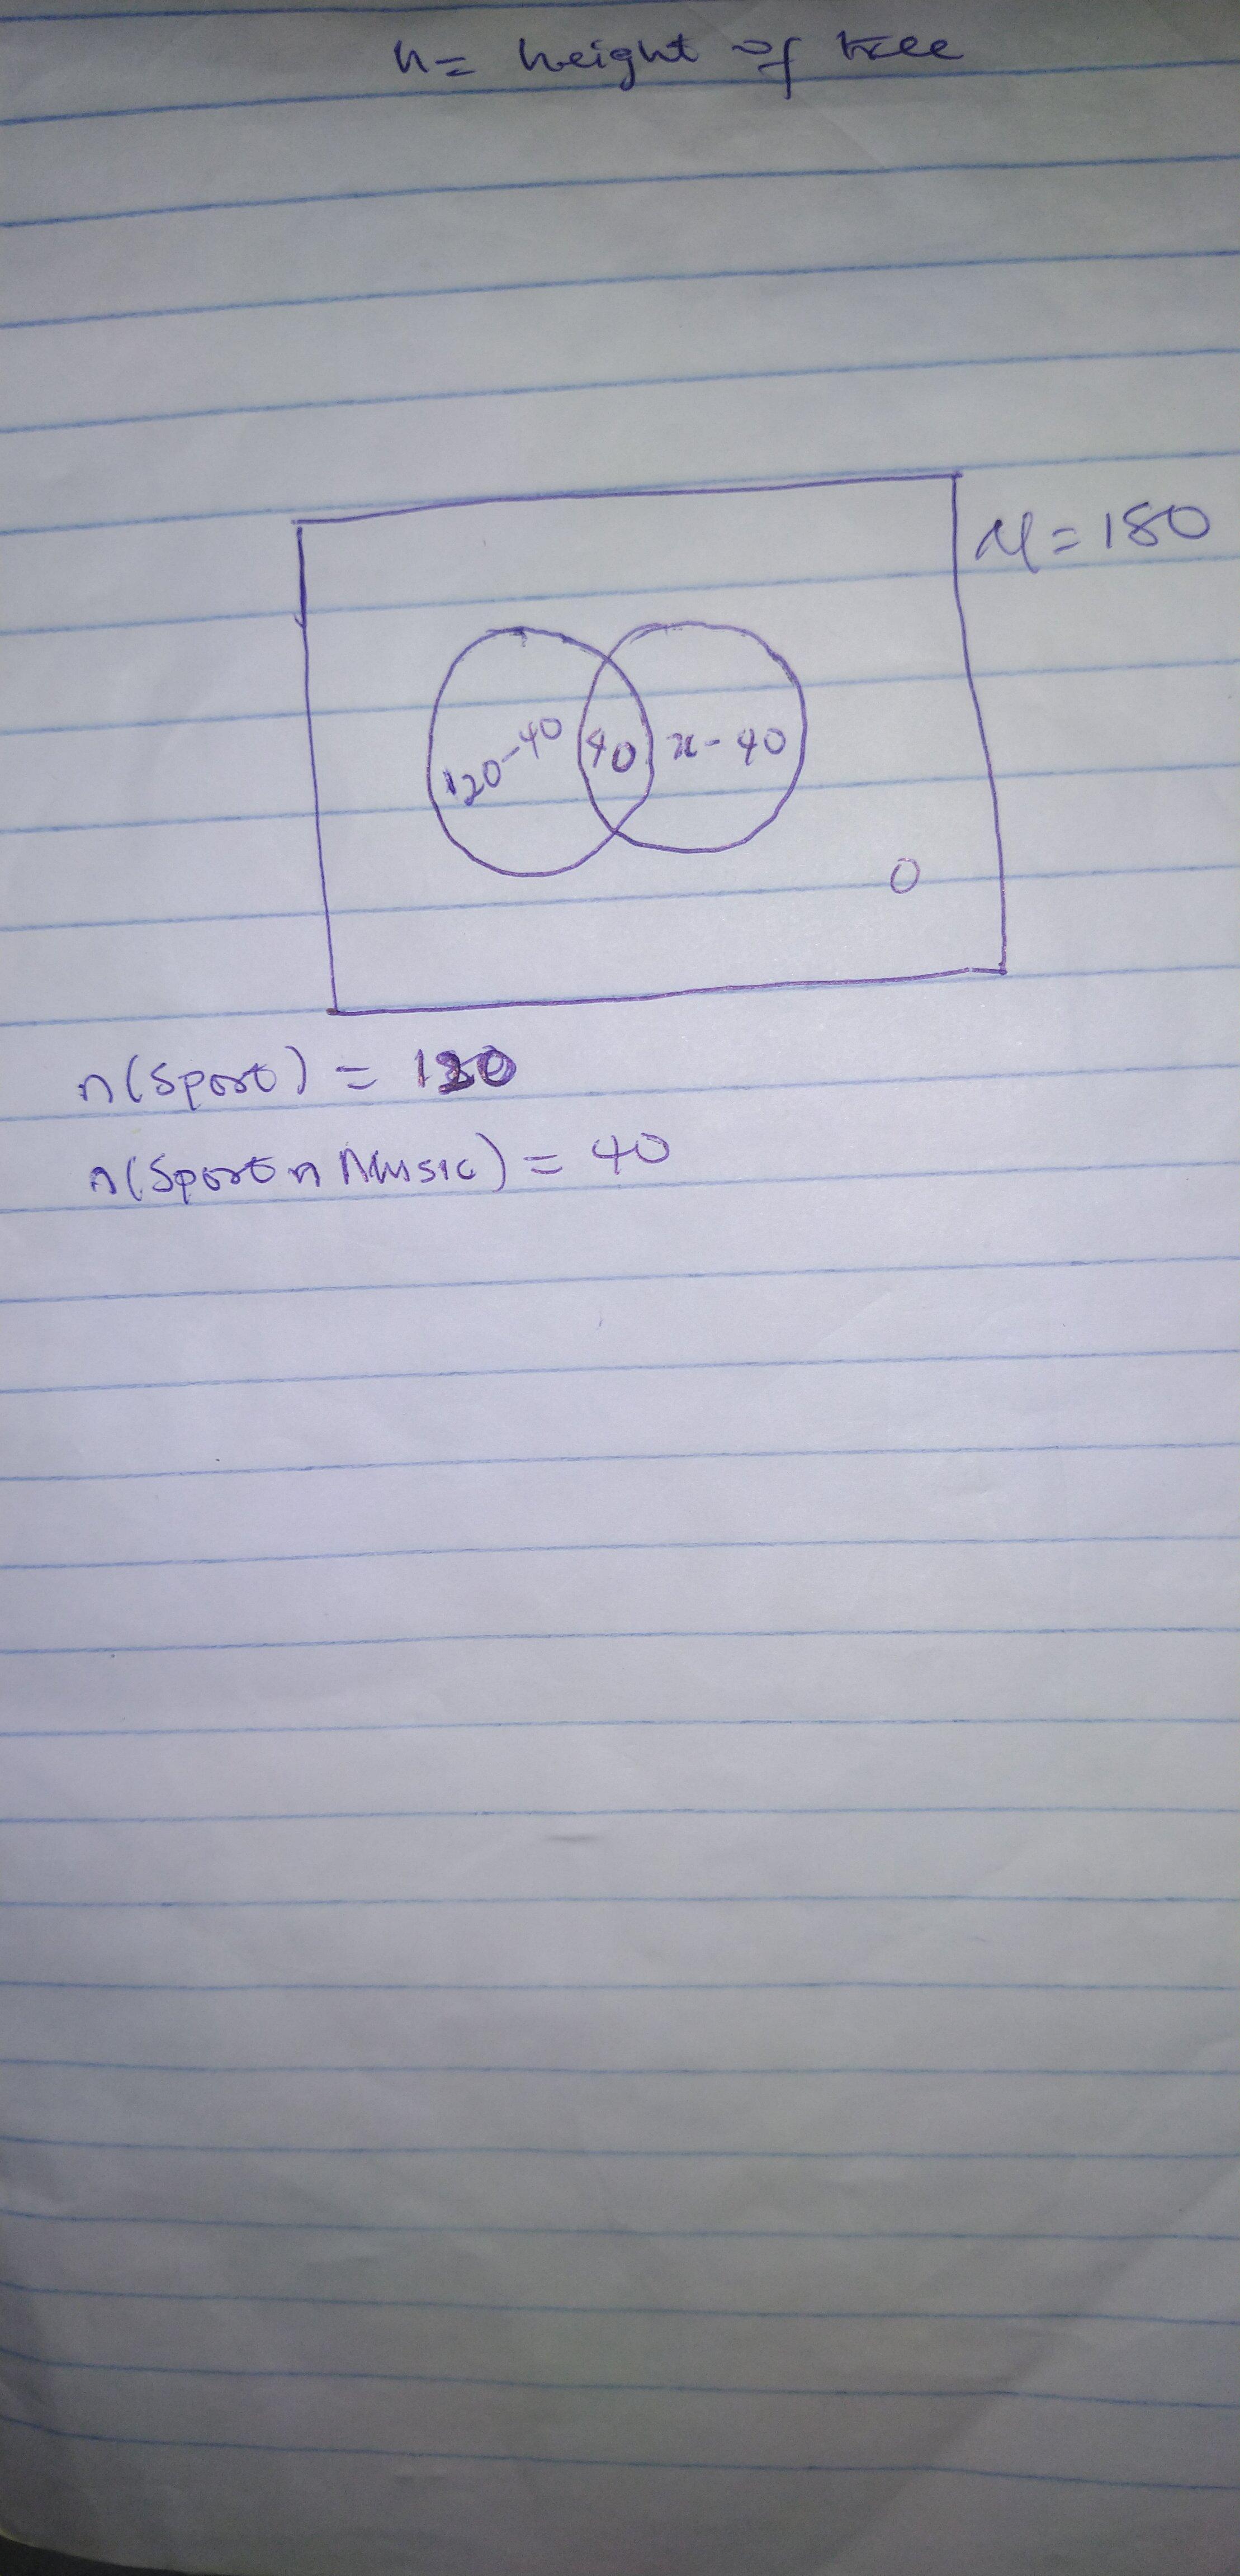 h= height of tree
μ=180
120-40 40 x-40
0
n(Sport) = 120
n(Sport n Music) = 40